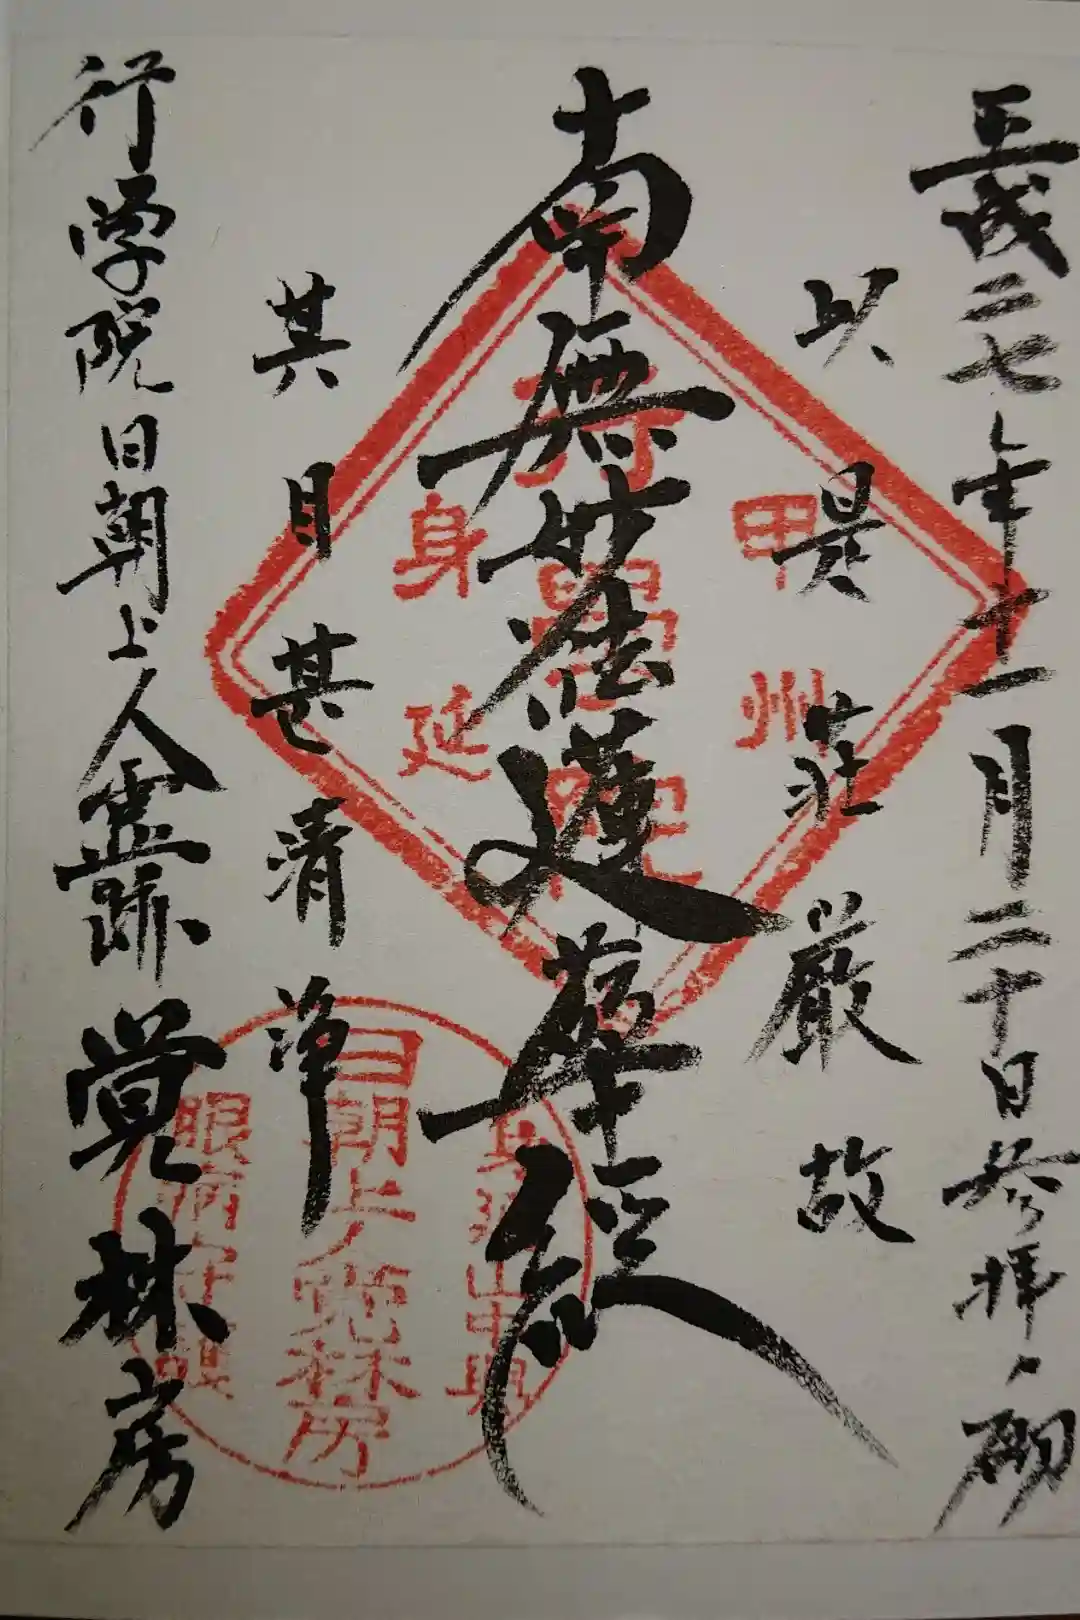 平成二七年十一月二十日参拝ノ砌
以是荘厳故
南無妙法蓮華経
其目甚清浄
行学院日朝上人霊跡 覚林房
甲州
身延
日朝上人
覚林房
眼病守護